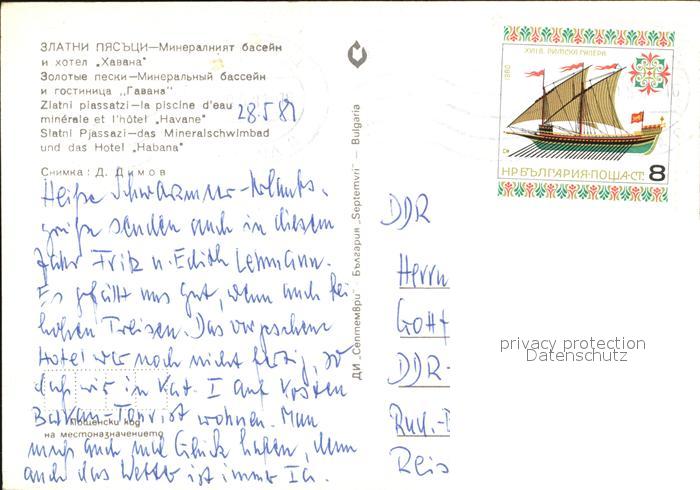 ЗЛАТНИ ПЯСЪЦИ—Минералният басейн
и хотел „Хавана"
Золотые пески—Минеральный бассейн
и гостиница „Гавана"
Zlatni piassatzi—la piscine d'eau
minérale et l'hôtel „Havane"
Slatni Pjassazi—das Mineralschwimbad
und das Hotel „Habana"
28.5.81
Снимка: Д. Димов
Heiße Schwarzmeer-Urlaubs-
grüße senden auch in diesem
Jahr Fritz u. Edith Lehmann.
Es gefällt uns gut, wenn auch bei
hohen Preisen. Das vorgesehene
Hotel war noch nicht fertig, so
daß wir in Kat. I auf Kosten
Balkan-Tourist wohnen. Man
muß auch mal Glück haben, denn
auch das Wetter ist immer Ia.
Пощенски код
на местоназначението
ДИ „Септември" - България „Septemvri" — Bulgaria
XVII В. РИМСКА ГАЛЕРА
1980
НР БЪЛГАРИЯ·ПОЩА·СТ. 8
DDR
Herrn
Gott
DDR-
Rud.-
Reis
privacy protection
Datenschutz